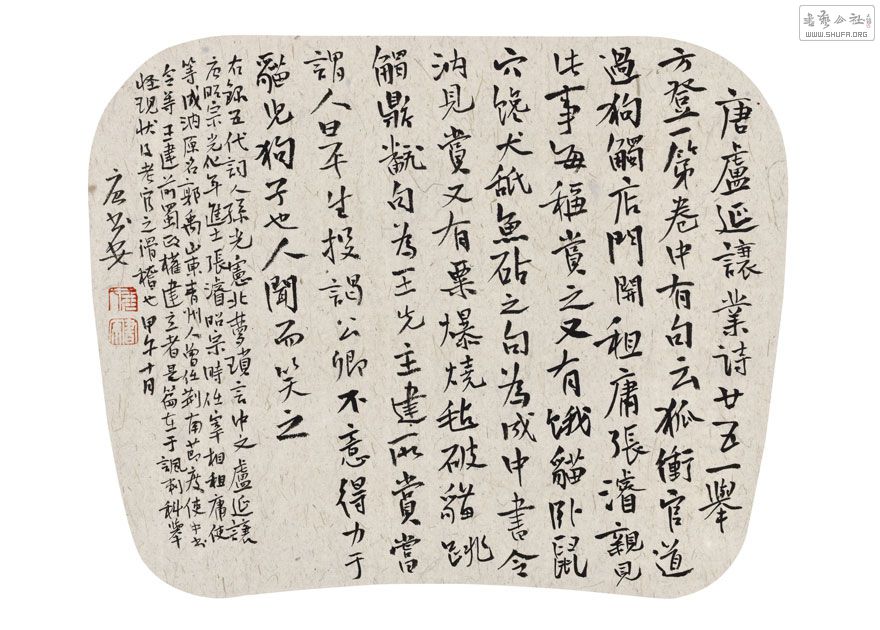 唐盧延讓業詩廿五一舉
方登一第卷中有句云狐衝官道
過狗觸店門開租庸張濬親見
此事每稱賞之又有餓貓臥鼠
穴饞犬舐魚砧之句為成中書令
汭見賞又有栗爆燒毡破貓跳
觸鼎翻句為王先主建所賞嘗
謂人曰平生投謁公卿不意得力于
貓兒狗子也人聞而笑之
右錄五代詞人孫光憲北夢瑣言中文盧延讓
唐昭宗光化年進士張濬昭宗時任宰相租庸使
等成汭原名郭禹山東青州人曾任荊南節度使中書
令等王建前蜀政權建立者是篇在于諷刺科舉
怪現狀及老官之滑稽也甲午十月
書藝公社
WWW.SHUFA.ORG